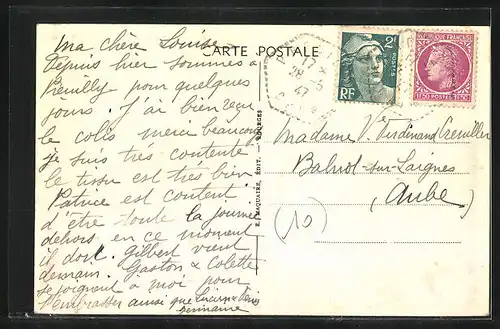 Ma chère Louise
CARTE POSTALE
Depuis hier sommes à
Preuilly pour quelques
jours. J'ai bien reçu
le colis merci beaucoup
je suis très contente
le tissu est très bien
Patrice est content
d'être toute la journée
dehors en ce moment
il dort. Gilbert vient
demain. Gaston & Colette
se joignent à moi pour
t'embrasser ainsi que
Germaine
E. MAQUAIRE, ÉDIT. - BOURGES
17
28-5
47
2F
RF
POSTES
POSTES FRANÇAISE
1F50
Madame Vve Ferdinand
Balnot-sur-Laignes
Aube
(10)